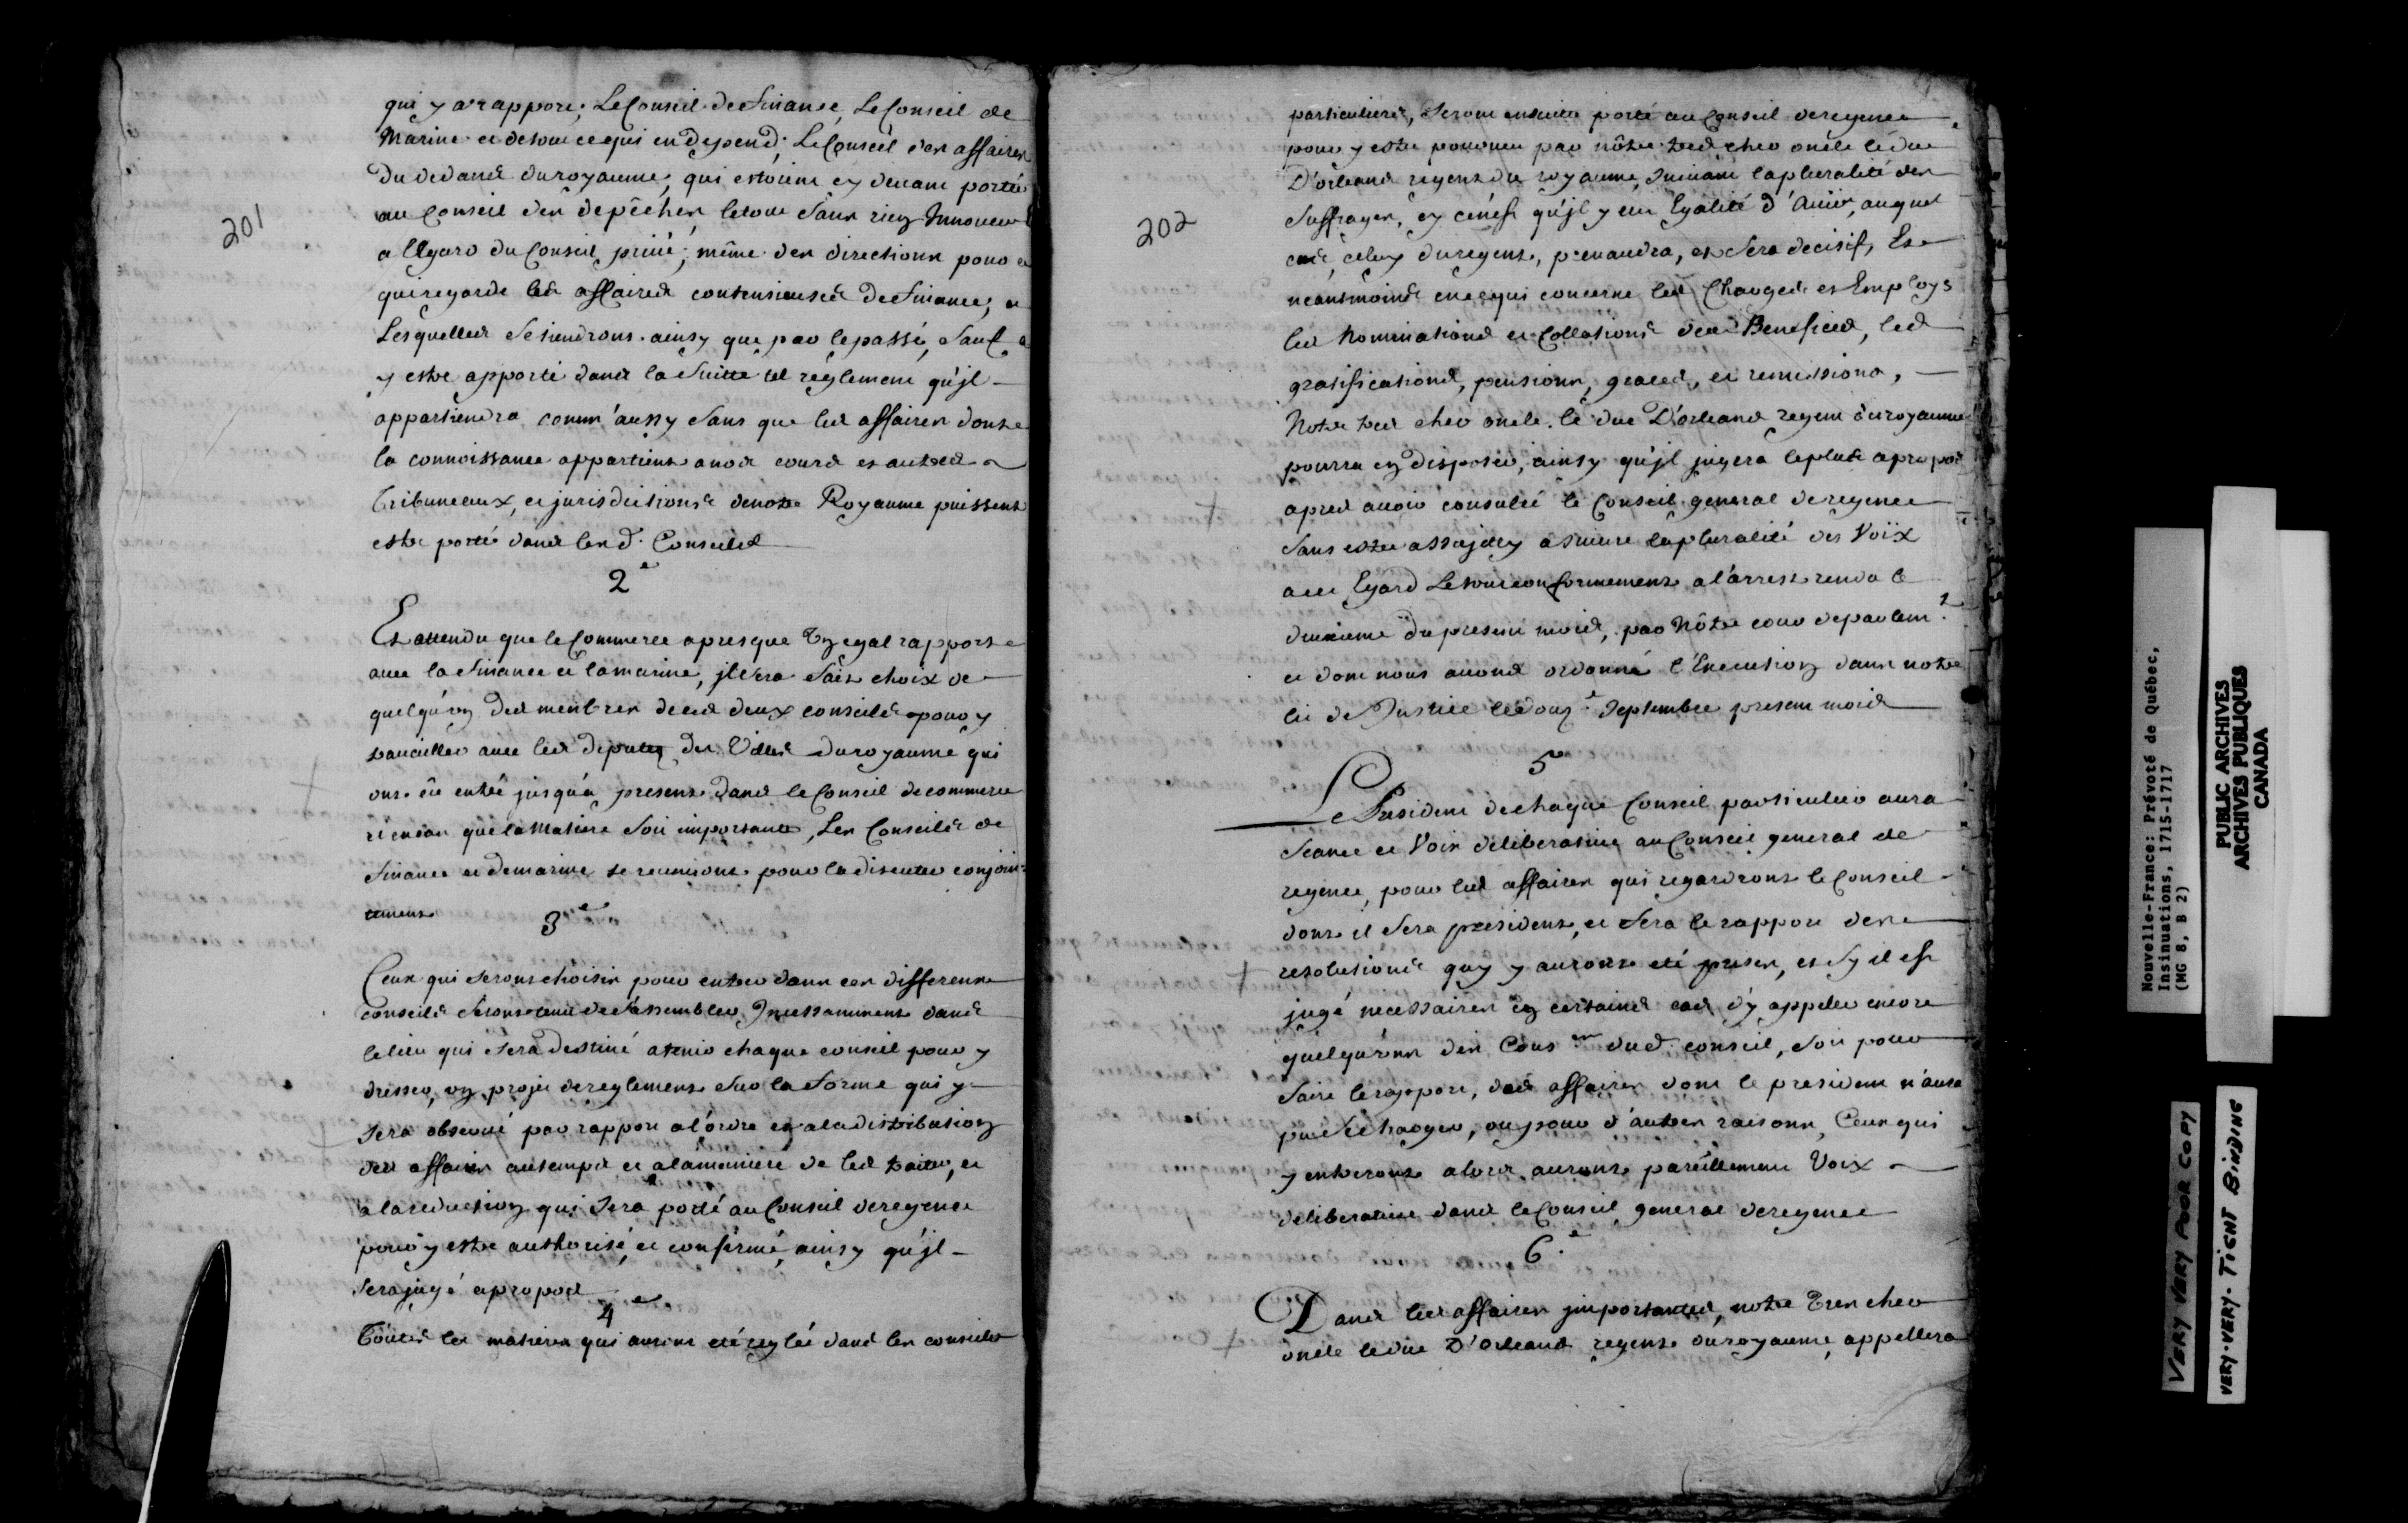 201
qui y a rapport, Le Conseil de finance, Le Conseil de
Marine et de tout ce qui en depend, Le Conseil des affaires
du dedans du royaume, qui estoient cy devant portées
au Conseil des depêches le tout sans rien Innouer
a l'Egard du Conseil priué, même des directions pour ce
qui regarde les affaires contensieuses de finance, 
Lesquelles se tiendront ainsy que par le passé, sauf a
y estre apporté dans la suitte tel reglement qu'jl
appartiendra comm'aussy sans que les affaires dont
la connoissance appartient a nos cours et autres
Tribuneaux, et jurisdictions de notre Royaume puissent
estre porté dans lesd. Conseils
2e
Et attendu que le Commerce a presque un egal rapport
auec la finance et la marine, jl sera fait choix de
quelqu'un des membres de ces deux conseils pour y
trauailler auec les deputez des Villes du royaume qui
ont eû entré jusqu'a present dans le Conseil de commerce
et en cas que la Matiere soit importante, Les Conseils de
finance et de marine se reuniront pour la discuter conjoin=
tement
3e
Ceux qui seront choisis pour entrer dans ces differents
conseils seront tenus de s'assembler Incessamment dans
le lieu qui sera destiné a tenir chaque conseil pour y
dresser, un projet de reglement sur la forme qui y
sera obserué par rapport a l'ordre et a la distribution
des affaires au temps et a la maniere de les traiter, et
a la reduction qui sera porté au Conseil de regence
pour y estre authorisé, et confirmé, ainsy qu'jl
sera jugé apropos
4e
Toutes les matieres qui auront eté reglée dans les conseils
202
particuliers, seront ensuitte porté au Conseil de regence
pour y estre pourueu par nôtre tres cher oncle le duc
D'orleans regent du royaume, suiuant la pluralité des
suffrages, sy ce n'est qu'jl y eut Egalité d'Auis, auquel
cas, celuy du regent, preuaudra, et sera decisif, Et
neantmoins en ce qui concerne les Charges et Employs
les Nominations et Collations des Benefices, les
gratifications, pensions, graces, et remissions,
Notre tres cher oncle le duc D'orleans regent du royaume
pourra en disposer, ainsy qu'jl jugera le plus apropos
apres auoir consulté le Conseil general de regence
sans estre assujetty a suiure la pluralité des Voix
a cet Egard Le tout conformement a l'arrest rendu le
deuxieme du present mois, par Nôtre cour de parlemt.
et dont nous auons ordonné l'Execution dans notre
lit de Justice le douze septembre present mois
5e
Le President de chaque Conseil particulier aura
seance et Voix deliberatiue au Conseil general de
regence, pour les affaires qui regardront le Conseil
dont il sera president, et fera le rapport des
resolutions quy y auront eté prises, et sy il est
jugé necessaires en certains cas d'y appeller encore
quelqu'uns des Cons ers dud. conseil, soit pour
faire le rapport, des affaires dont le president n'aura
pu se charger, ou pour d'autres raisons, Ceux qui
y entreront alors auront pareillement Voix
deliberatiue dans le Conseil general de regence
6.e
Dans les affaires jmportantes, notre Tres cher
oncle le duc D'orleans regent du royaume, appellera
Nouvelle-France: Prévoté de Québec,
Insinuations, 1715-1717
(MG 8, B 2)
PUBLIC ARCHIVES
ARCHIVES PUBLIQUES
CANADA
VERY VERY POOR COPY
VERY-VERY-TIGHT BINDING